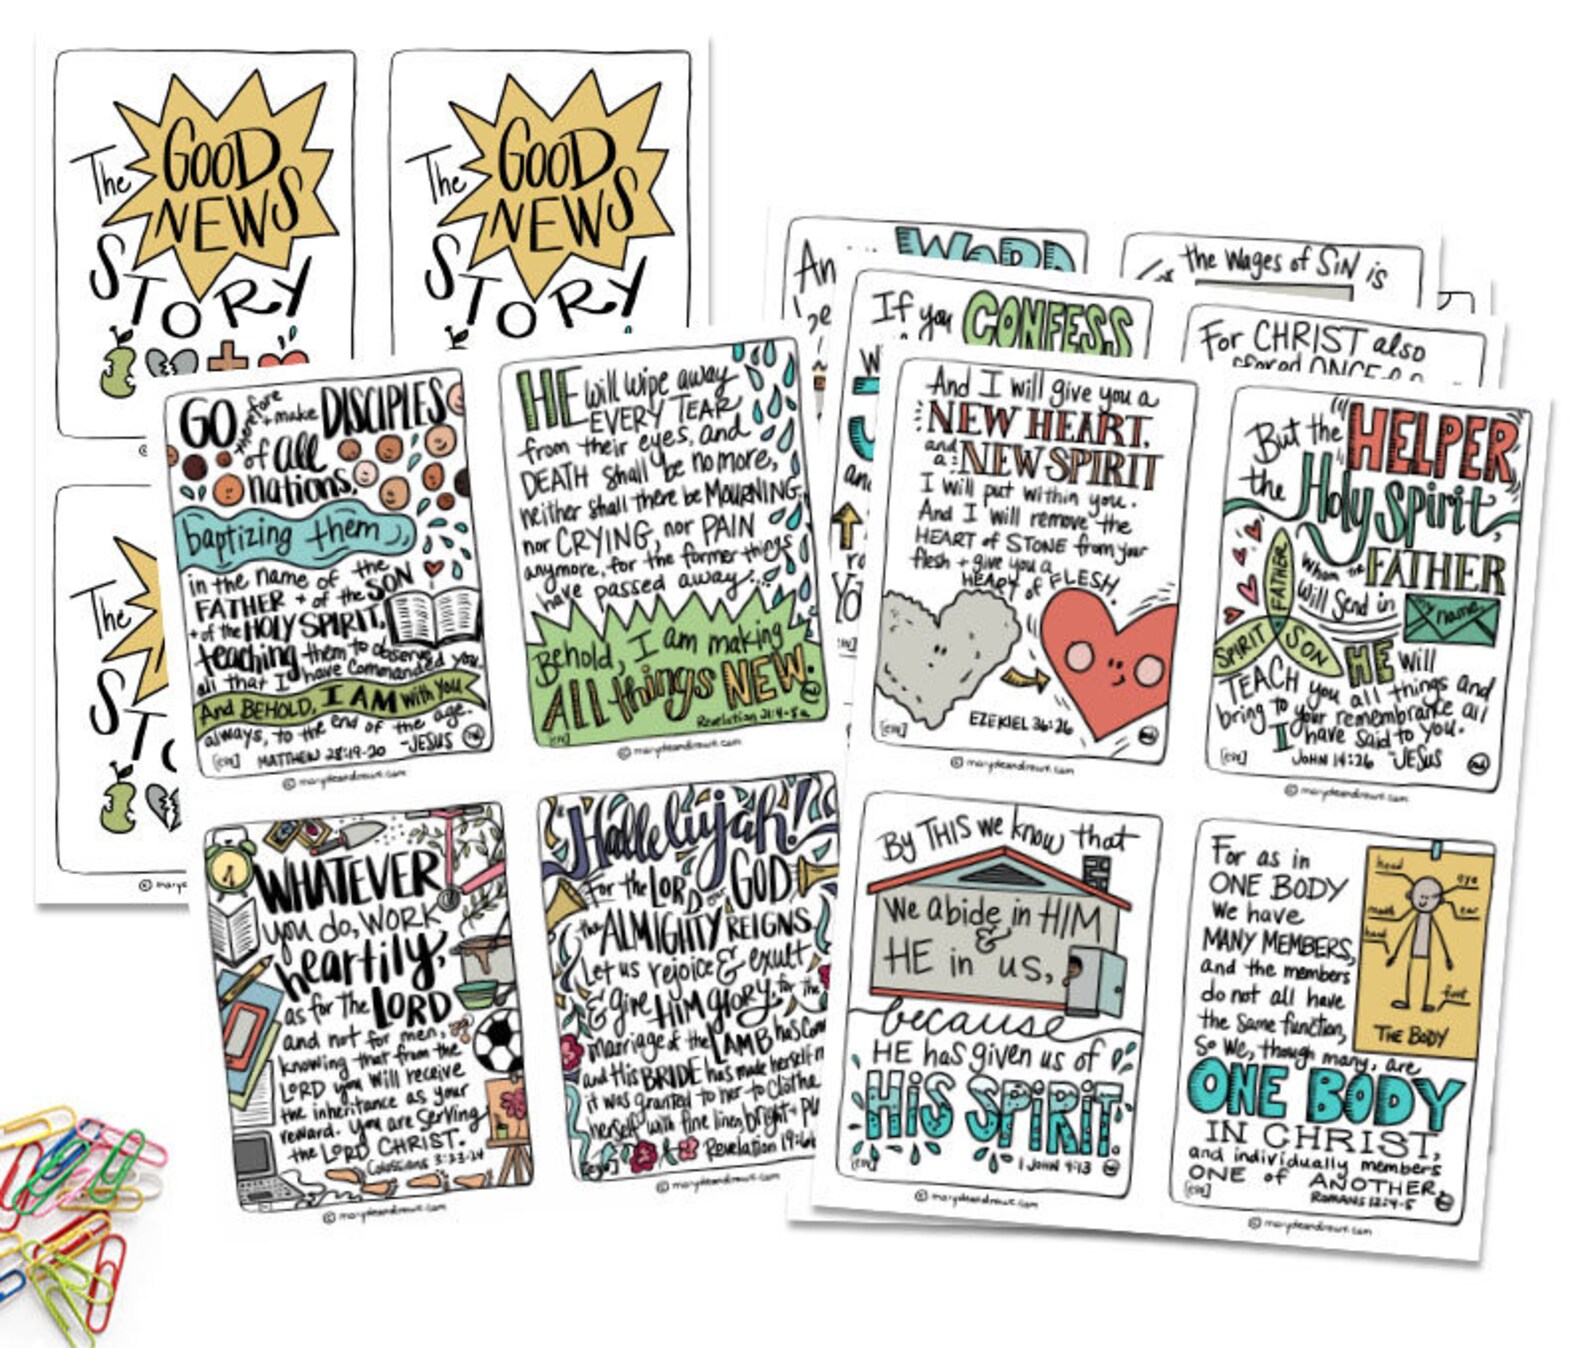 The
GOOD
NEWS
STORY
The
GOOD
NEWS
STORY
The
GO therefore + make DISCIPLES
of all
nations,
baptizing them
in the name of the
FATHER + of the SON
+ of the HOLY SPIRIT,
teaching them to observe
all that I have commanded you.
And BEHOLD, I AM with you
always, to the end of the age.
MATTHEW 28:19-20 -JESUS
[ESV]
© marydeandraws.com
HE will wipe away
EVERY TEAR
from their eyes, and
DEATH shall be no more,
neither shall there be MOURNING,
nor CRYING, nor PAIN
anymore, for the former things
have passed away...
Behold, I am making
ALL things NEW.
Revelation 21:4-5a
[ESV]
© marydeandraws.com
WHATEVER
you do, WORK
heartily,
as for the LORD
and not for men,
knowing that from the
LORD you will receive
the inheritance as your
reward. You are serving
the LORD CHRIST.
Colossians 3:23-24
© marydeandraws.com
Hallelujah!
For the LORD our GOD
the ALMIGHTY REIGNS.
Let us rejoice & exult
& give HIM glory, for the
marriage of the LAMB has com
and His BRIDE has made herself
it was granted to her to clothe
herself with fine linen, bright +
Revelation 19:
[ESV]
© marydeandraws.com
WORD
the Wages of SIN is
If you CONFESS
For CHRIST also
suffered ONCE
And I will give you a
NEW HEART,
and a NEW SPIRIT
I will put within you.
And I will remove the
HEART of STONE from your
flesh + give you a
HEART of FLESH.
EZEKIEL 36:26
[ESV]
© marydeandraws.com
But the "HELPER,
the Holy Spirit,
whom the FATHER
will send in
my name,
FATHER
SPIRIT
SON
HE will
TEACH you all things and
bring to your remembrance all
I have said to you.
JOHN 14:26 -JESUS
[ESV]
© marydeandraws.com
By THIS we know that
We abide in HIM
&
HE in us,
because
HE has given us of
HIS SPIRIT.
1 JOHN 4:13
[ESV]
© marydeandraws.com
For as in
ONE BODY
We have
MANY MEMBERS,
and the members
do not all have
the same function,
So we, though many, are
ONE BODY
IN CHRIST,
and individually members
ONE of ANOTHER.
ROMANS 12:4-5
[ESV]
head
eye
mouth
ear
hand
foot
THE BODY
© marydeandraws.com